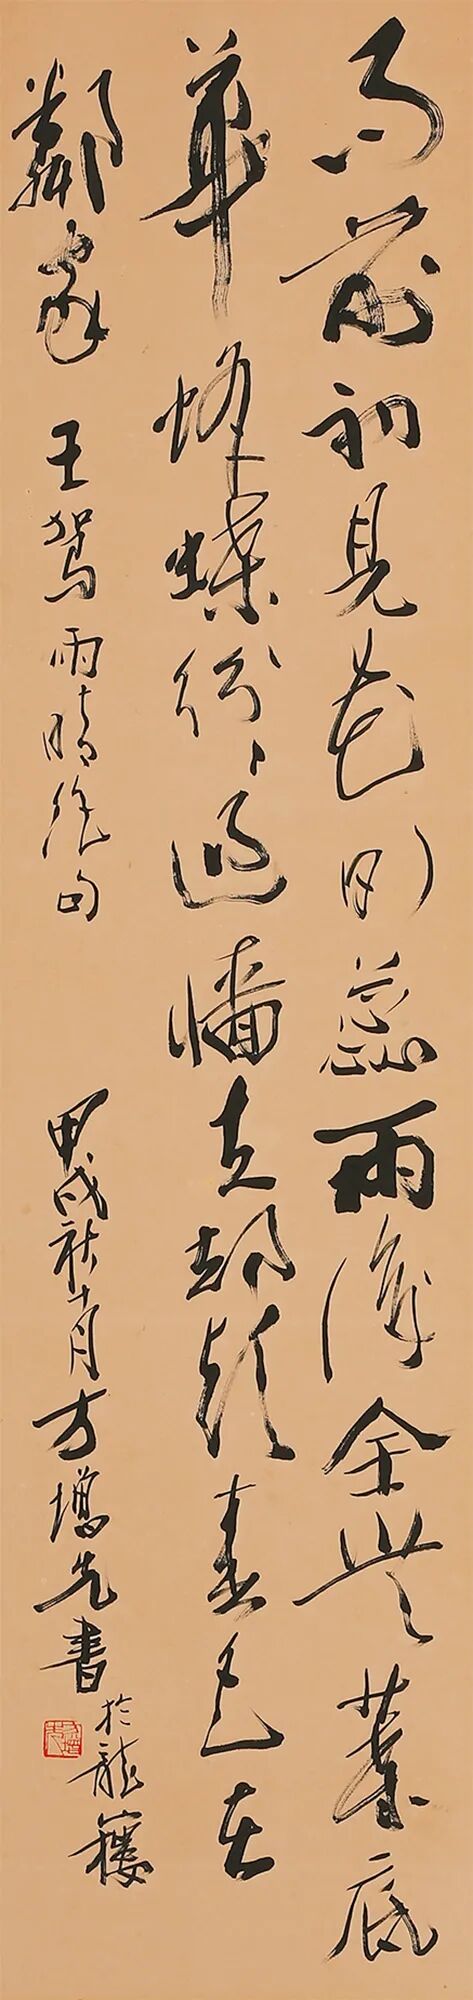 雨前初見花間蕊雨後全無葉底
華蜂蝶紛紛過牆去卻疑春色在
鄰家 王駕雨晴絕句 甲戌秋十月方增先書於龍